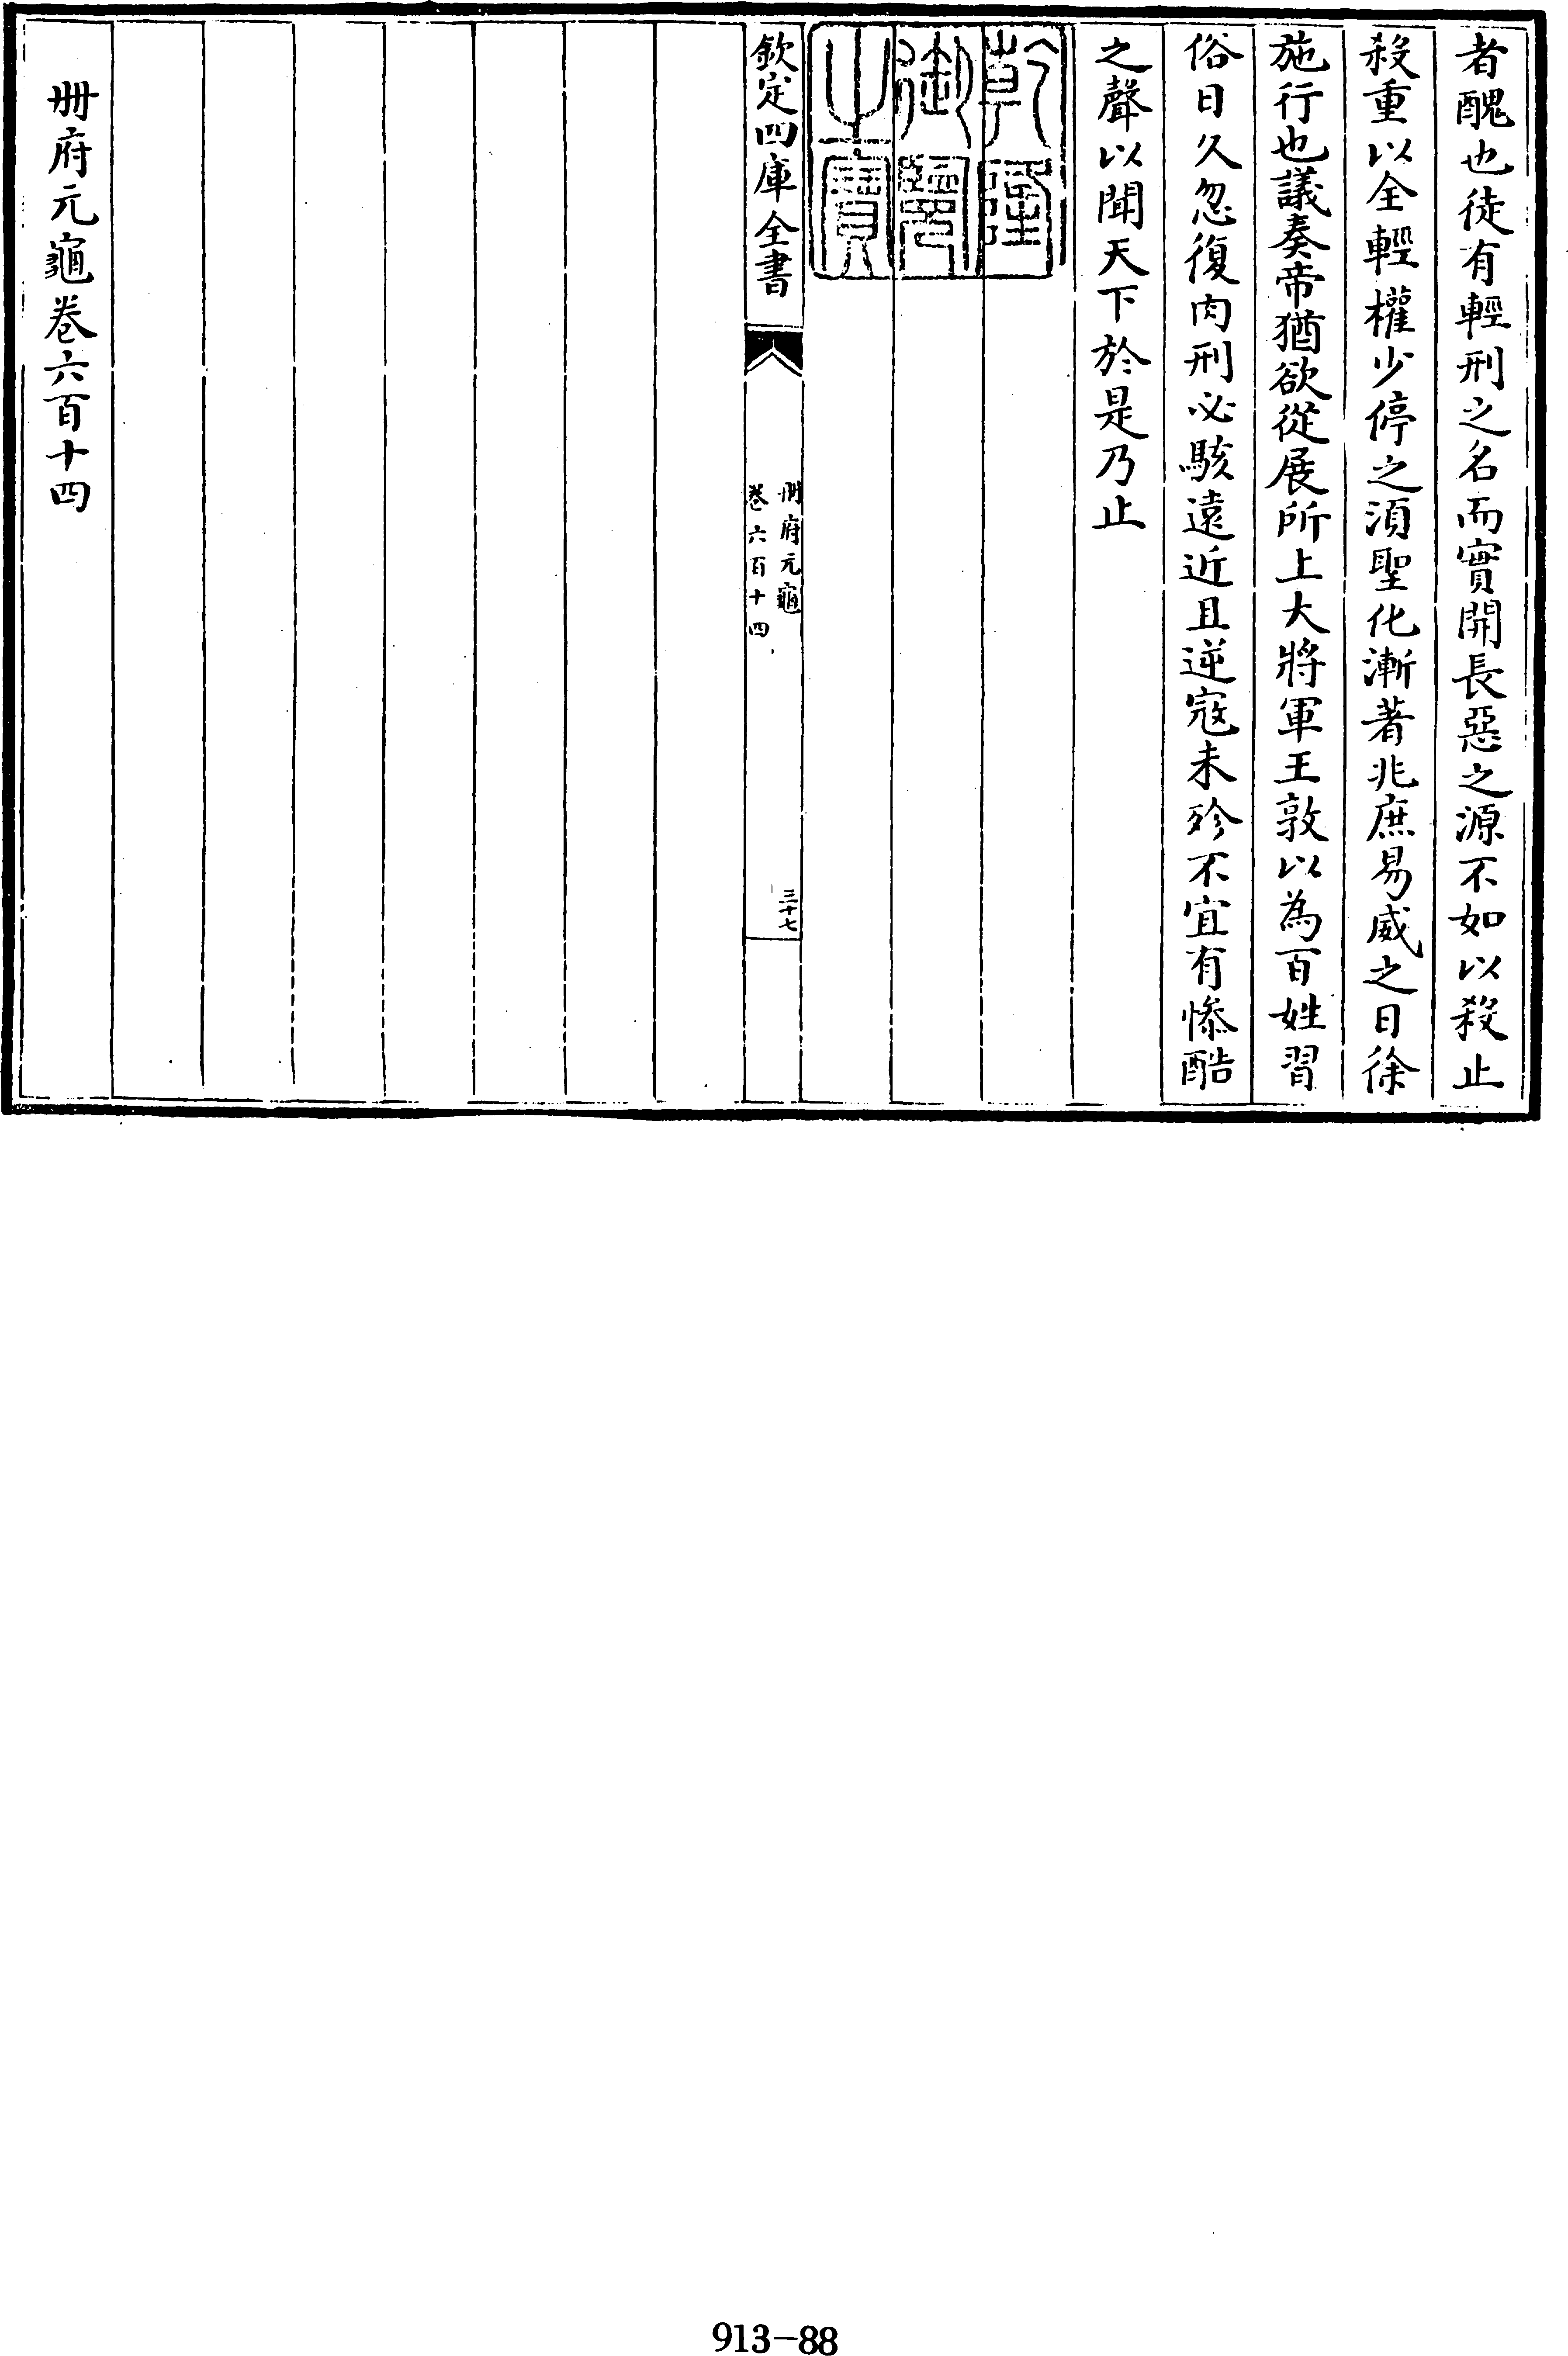 者醜也徒有輕刑之名而實開長惡之源不如以殺止
殺重以全輕權少停之須聖化漸著兆庶易威之日徐
施行也議奏帝猶欲從展所上大將軍王敦以為百姓習
俗日久忽復肉刑必駭遠近且逆宼未殄不宜有慘酷
之聲以聞天下於是乃止
乾隆
御覽
之寶
欽定四庫全書
冊府元龜
卷六百十四
三十七
冊府元龜卷六百十四
913-88